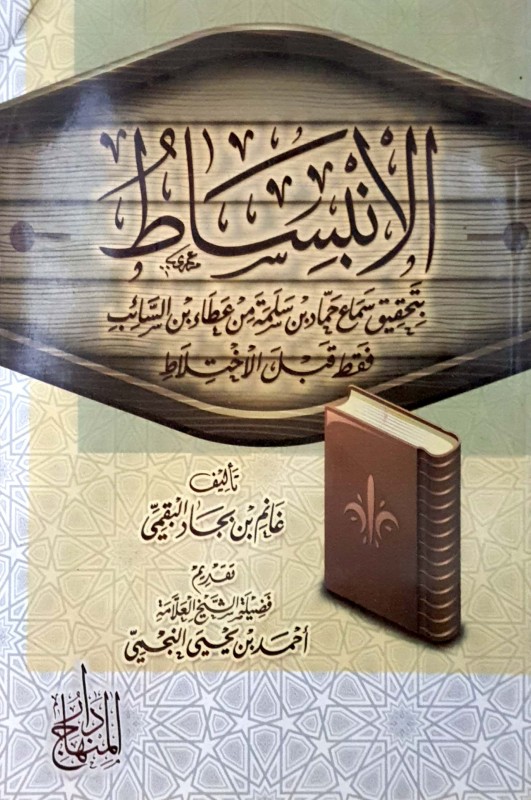 الانبساط
بتحقيق سماع حماد بن سلمة من عطاء بن السائب
فقط قبل الاختلاط
تأليف
غانم بن بجاد البقمي
تقديم
فضيلة الشيخ العلامة
أحمد بن يحيى النجمي
دار المنهاج